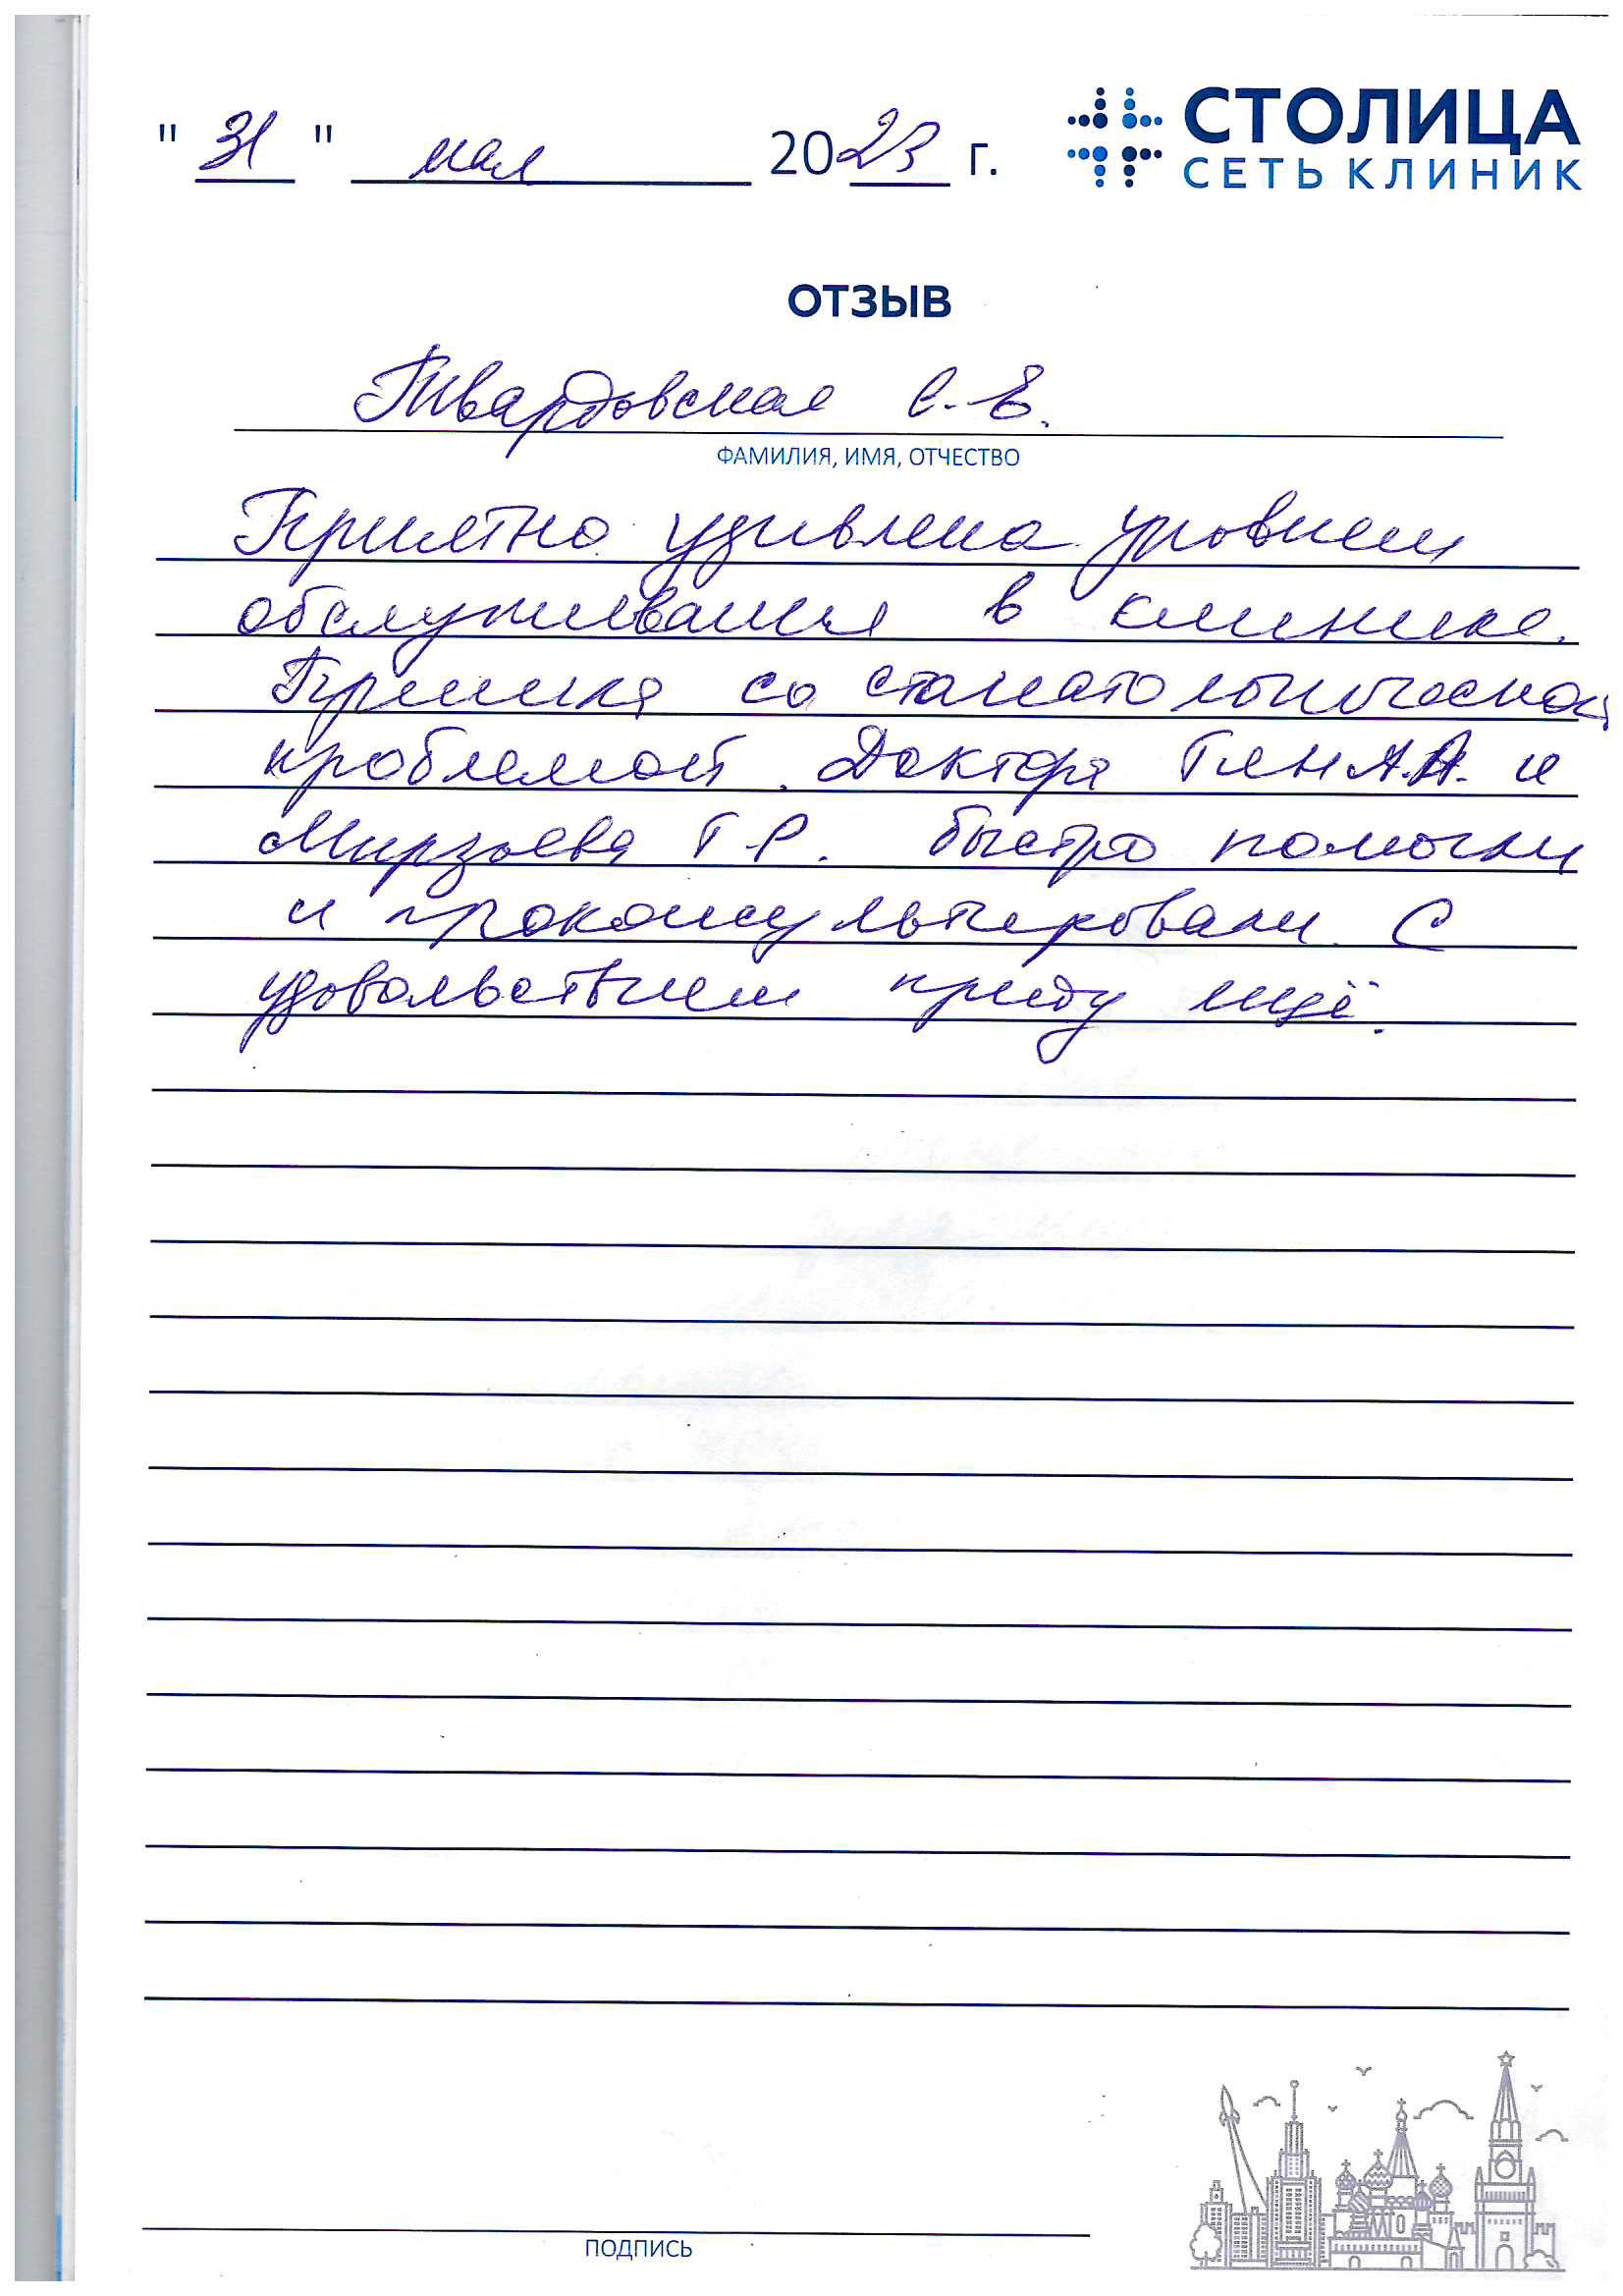 " 31 " мая 2023 г.
СТОЛИЦА
СЕТЬ КЛИНИК
ОТЗЫВ
Твардовская С.Е.
ФАМИЛИЯ, ИМЯ, ОТЧЕСТВО
Приятно удивлена уровнем
обслуживания в клинике.
Пришла со стоматологической
проблемой. Доктора Гян А.А. и
Мирзоева Г.Р. быстро помогли
и проконсультировали. С
удовольствием приду ещё.
ПОДПИСЬ